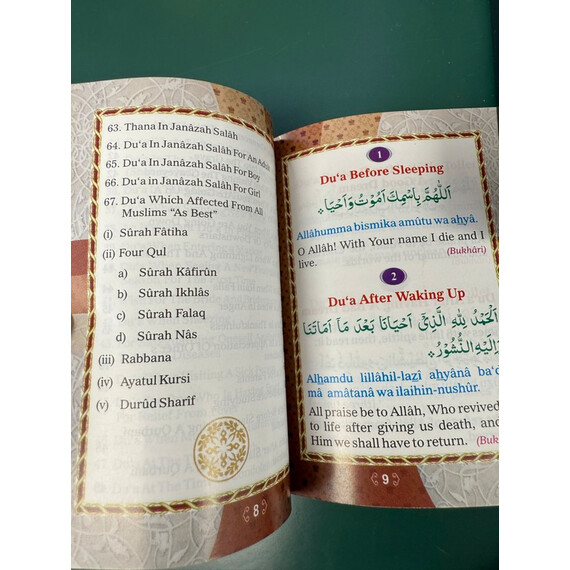 63. Thana In Janâzah Salâh
64. Du‘a In Janâzah Salâh For An Adult
65. Du‘a In Janâzah Salâh For Boy
66. Du‘a in Janâzah Salâh For Girl
67. Du‘a Which Affected From All
Muslims “As Best”
(i) Sûrah Fâtiha
(ii) Four Qul
a) Sûrah Kâfirûn
b) Sûrah Ikhlâs
c) Sûrah Falaq
d) Sûrah Nâs
(iii) Rabbana
(iv) Ayatul Kursi
(v) Durûd Sharîf
8
1
Du‘a Before Sleeping
اَللّٰهُمَّ بِاسْمِكَ اَمُوْتُ وَاَحْيَا
Allâhumma bismika amûtu wa ahyâ.
O Allâh! With Your name I die and I
live.
(Bukhâri)
2
Du‘a After Waking Up
اَلْحَمْدُ لِلّٰهِ الَّذِىْٓ اَحْيَانَا بَعْدَ مَآ اَمَاتَنَا
وَاِلَيْهِ النُّشُوْرُ
Alhamdu lillâhil-lazî ahyânâ ba‘d
mâ amâtanâ wa ilaihin-nushûr.
All praise be to Allâh, Who revived
to life after giving us death, and
Him we shall have to return. (Buk
9